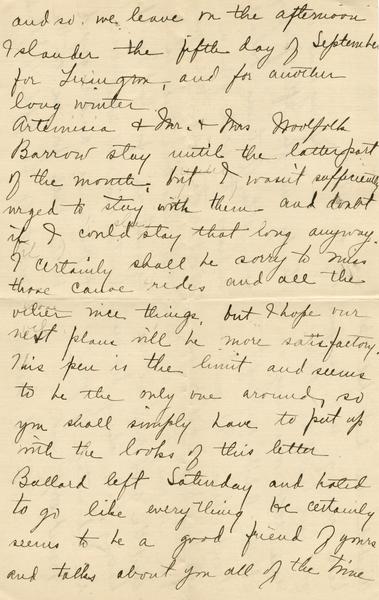 and so we leave on the afternoon
Islander the fifth day of September
for Lexington, and for another
long winter.
Artemisia & Mr. & Mrs Woolfolk
Barrow stay until the latter part
of the month, but I wasn't sufficiently
urged to stay with them and doubt
if I could stay that long anyway.
I certainly shall be sorry to miss
those canoe rides and all the
other nice things, but I hope our
next plans will be more satisfactory.
This pen is the limit and seems
to be the only one around, so
you shall simply have to put up
with the looks of this letter
Ballard left Saturday and hated
to go like everything he certainly
seems to be a good friend of yours
and talks about you all of the time